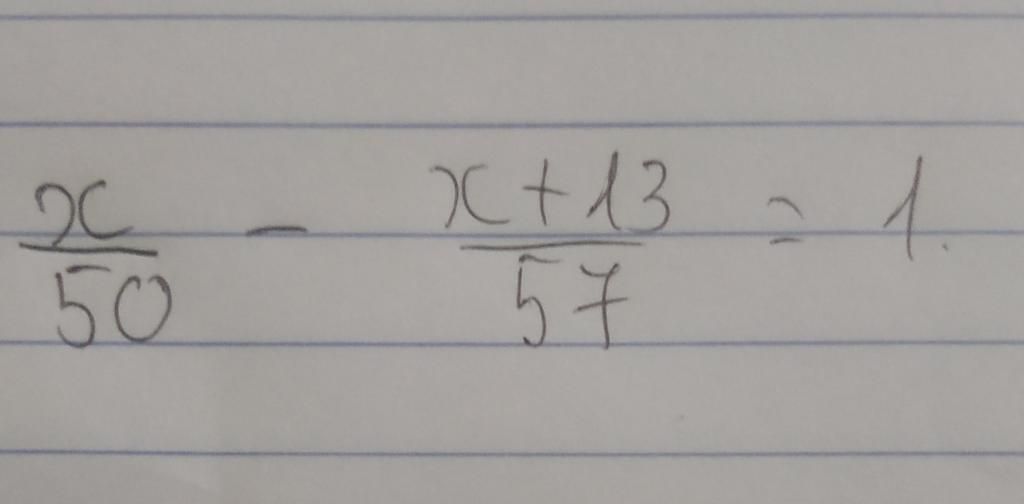 x/50 - x+13/57 = 1.